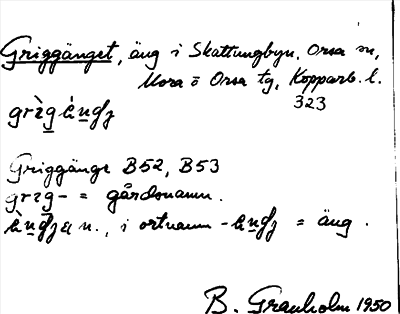 Griggänget, äng i Skattungbyn, Orsa sn,
Mora o Orsa tg, Kopparb. l.
323
Griggänge B52, B53
= gårdsnamn.
n., i ortnamn = äng.
B. Granholm 1950